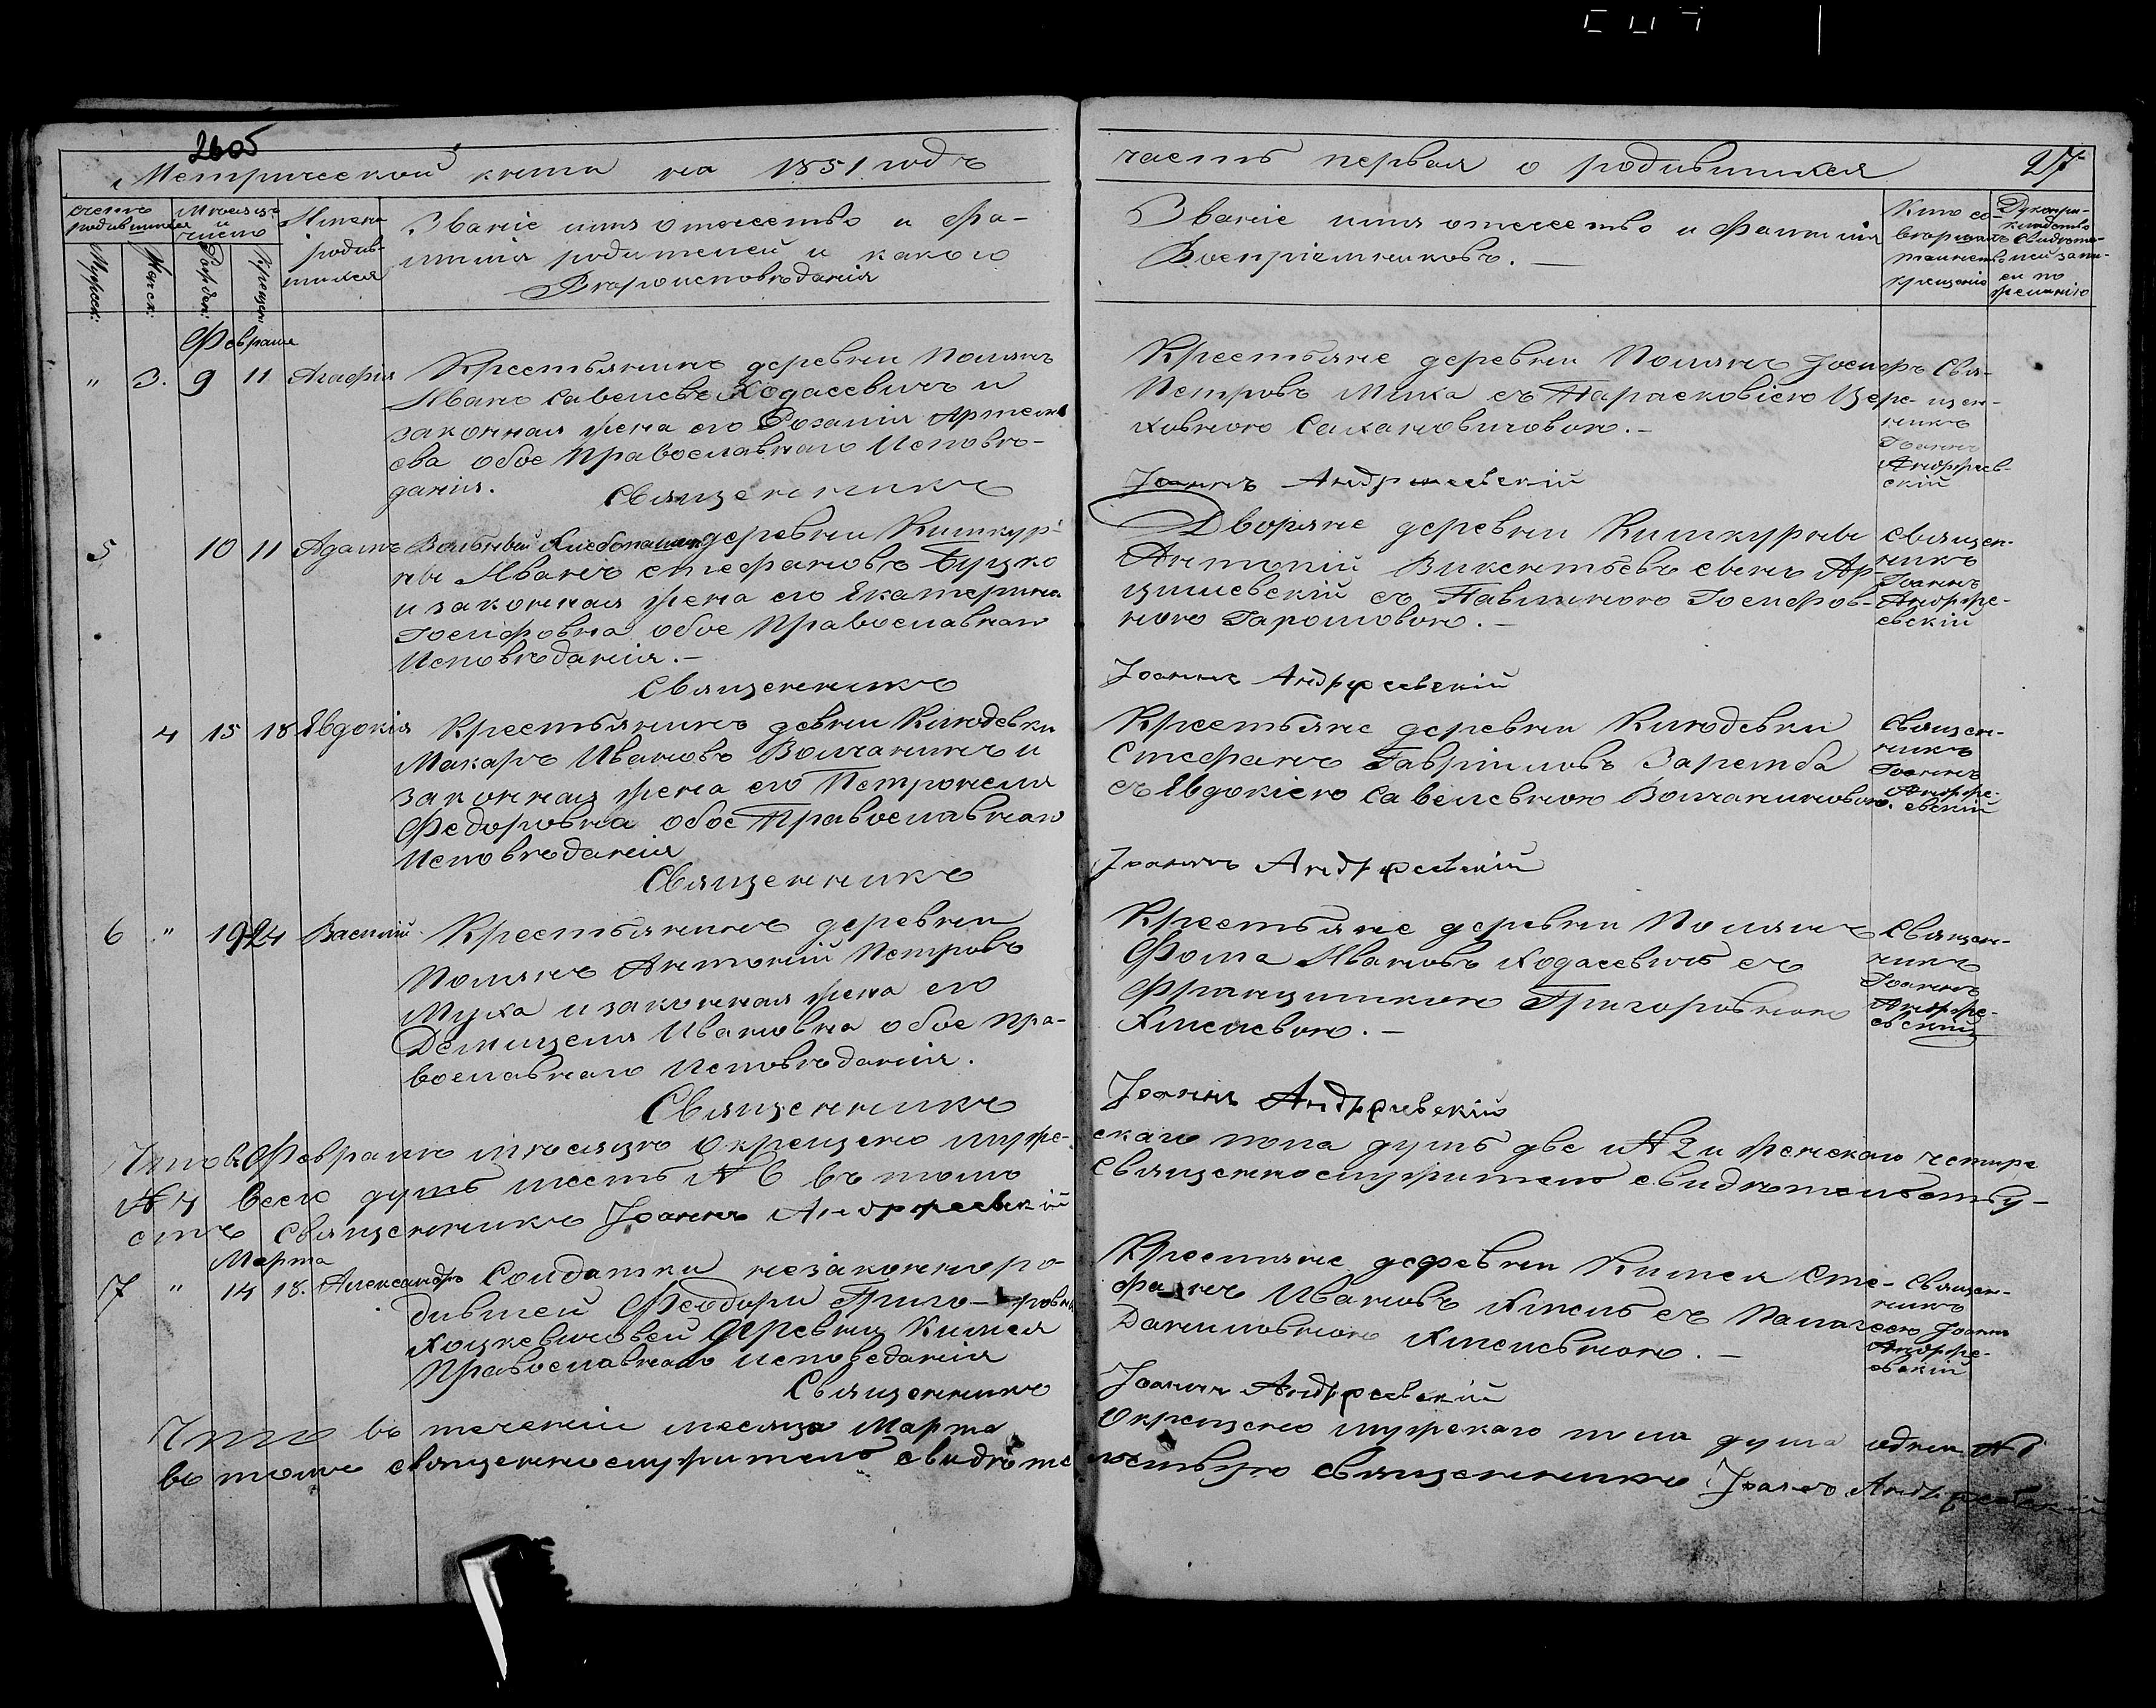 2605
Метрической книги на 1851 годъ
часть первая о родившихся
27
счетъ родившихся
Мѣсяцъ и число
Имена родившихся
Званіе имя отчество и фа-
милія родителей и какого
Вѣроисповѣданія
Мужеск:
Женск:
Рожден:
Крещен:
Званіе имя отчество и фамилія
Воспріемниковъ. —
Кто со-
вершалъ
таинство
крещенія
Рукопри-
кладство
свидѣте-
лей запи-
си по
желанію
Февраля
" 3. 9 11 Агафія Крестьянинъ деревни Полянъ
Иванъ Савельевъ Ходасевичъ и
законная жена его Розалія Артемь
ева обое Православнаго Исповѣ-
данія.
Священникъ
Крестьяне деревни Полянъ Іосифъ
Петровъ Муха съ Парасковіею
ховною Сахановичовою. —
Іоаннъ Андржеевскій
Свя-
щен-
никъ
Іоаннъ
Андржеев-
скій
5 10 11 Адамъ деревни Кишкур-
ны Иванъ Стефановъ Буцко
и законная жена его Екатерина
Іосифовна обое Православнаго
Исповѣданія. —
Священникъ
Дворяне деревни Кишкурны
Антоній Викентьевъ сынъ Ар-
цишевскій съ Павлиною Іосифов-
ною
Іоаннъ Андржеевскій
Священ-
никъ
Іоаннъ
Андрже-
евскій
4 15 18 Евдокія Крестьянинъ девни
Макаръ Ивановъ Волчанинъ и
законная жена его Петронеля
Федоровна обое Православнаго
Исповѣданія
Священникъ
Крестьяне деревни
Стефанъ Гавриловъ Заремба
съ Евдокіею Савельевною Волчаниновою.
Іоаннъ Андржеевскій
Священ-
никъ
Іоаннъ
Андрже-
евскій
6 " 19 24 Василій Крестьянинъ деревни
Полянъ Антоній Петровъ
Муха и законная жена его
Доминцеля Ивановна обое Пра-
вославнаго Исповѣданія.
Священникъ
Крестьяне деревни Полянъ
Фома Ивановъ Ходасевичъ съ
Францишкою Григоровною
Хмелевою. —
Іоаннъ Андржеевскій
Священ-
никъ
Іоаннъ
Андрже-
евскій
Что въ Февралѣ мѣсяцѣ Окрещено муже-
скаго пола душъ две № 2 и женскаго четыре
№ 4 всего душъ шесть № 6 въ томъ
Священнослужительо свидѣтельству-
етъ Священникъ Іоаннъ Андржеевскій
Марта
7 " 14 18. Александръ Солдатки незаконноро-
дившей Феодоры Григо-ровны
Хоцкевичовой Деревни
Православнаго исповеданія
Священникъ
Крестяне деревни Сте-
фанъ Ивановъ Хмель съ Палагеею
Даниловною Хмелевною. —
Іоаннъ Андржеевскій
Священ-
никъ
Іоаннъ
Андрже-
евскій
Что въ теченіи месяца Марта
Окрещено мужскаго пола душа одна № 1
въ томъ священнослужительо свидѣте
льствую священникъ Іоаннъ Андржеевскій